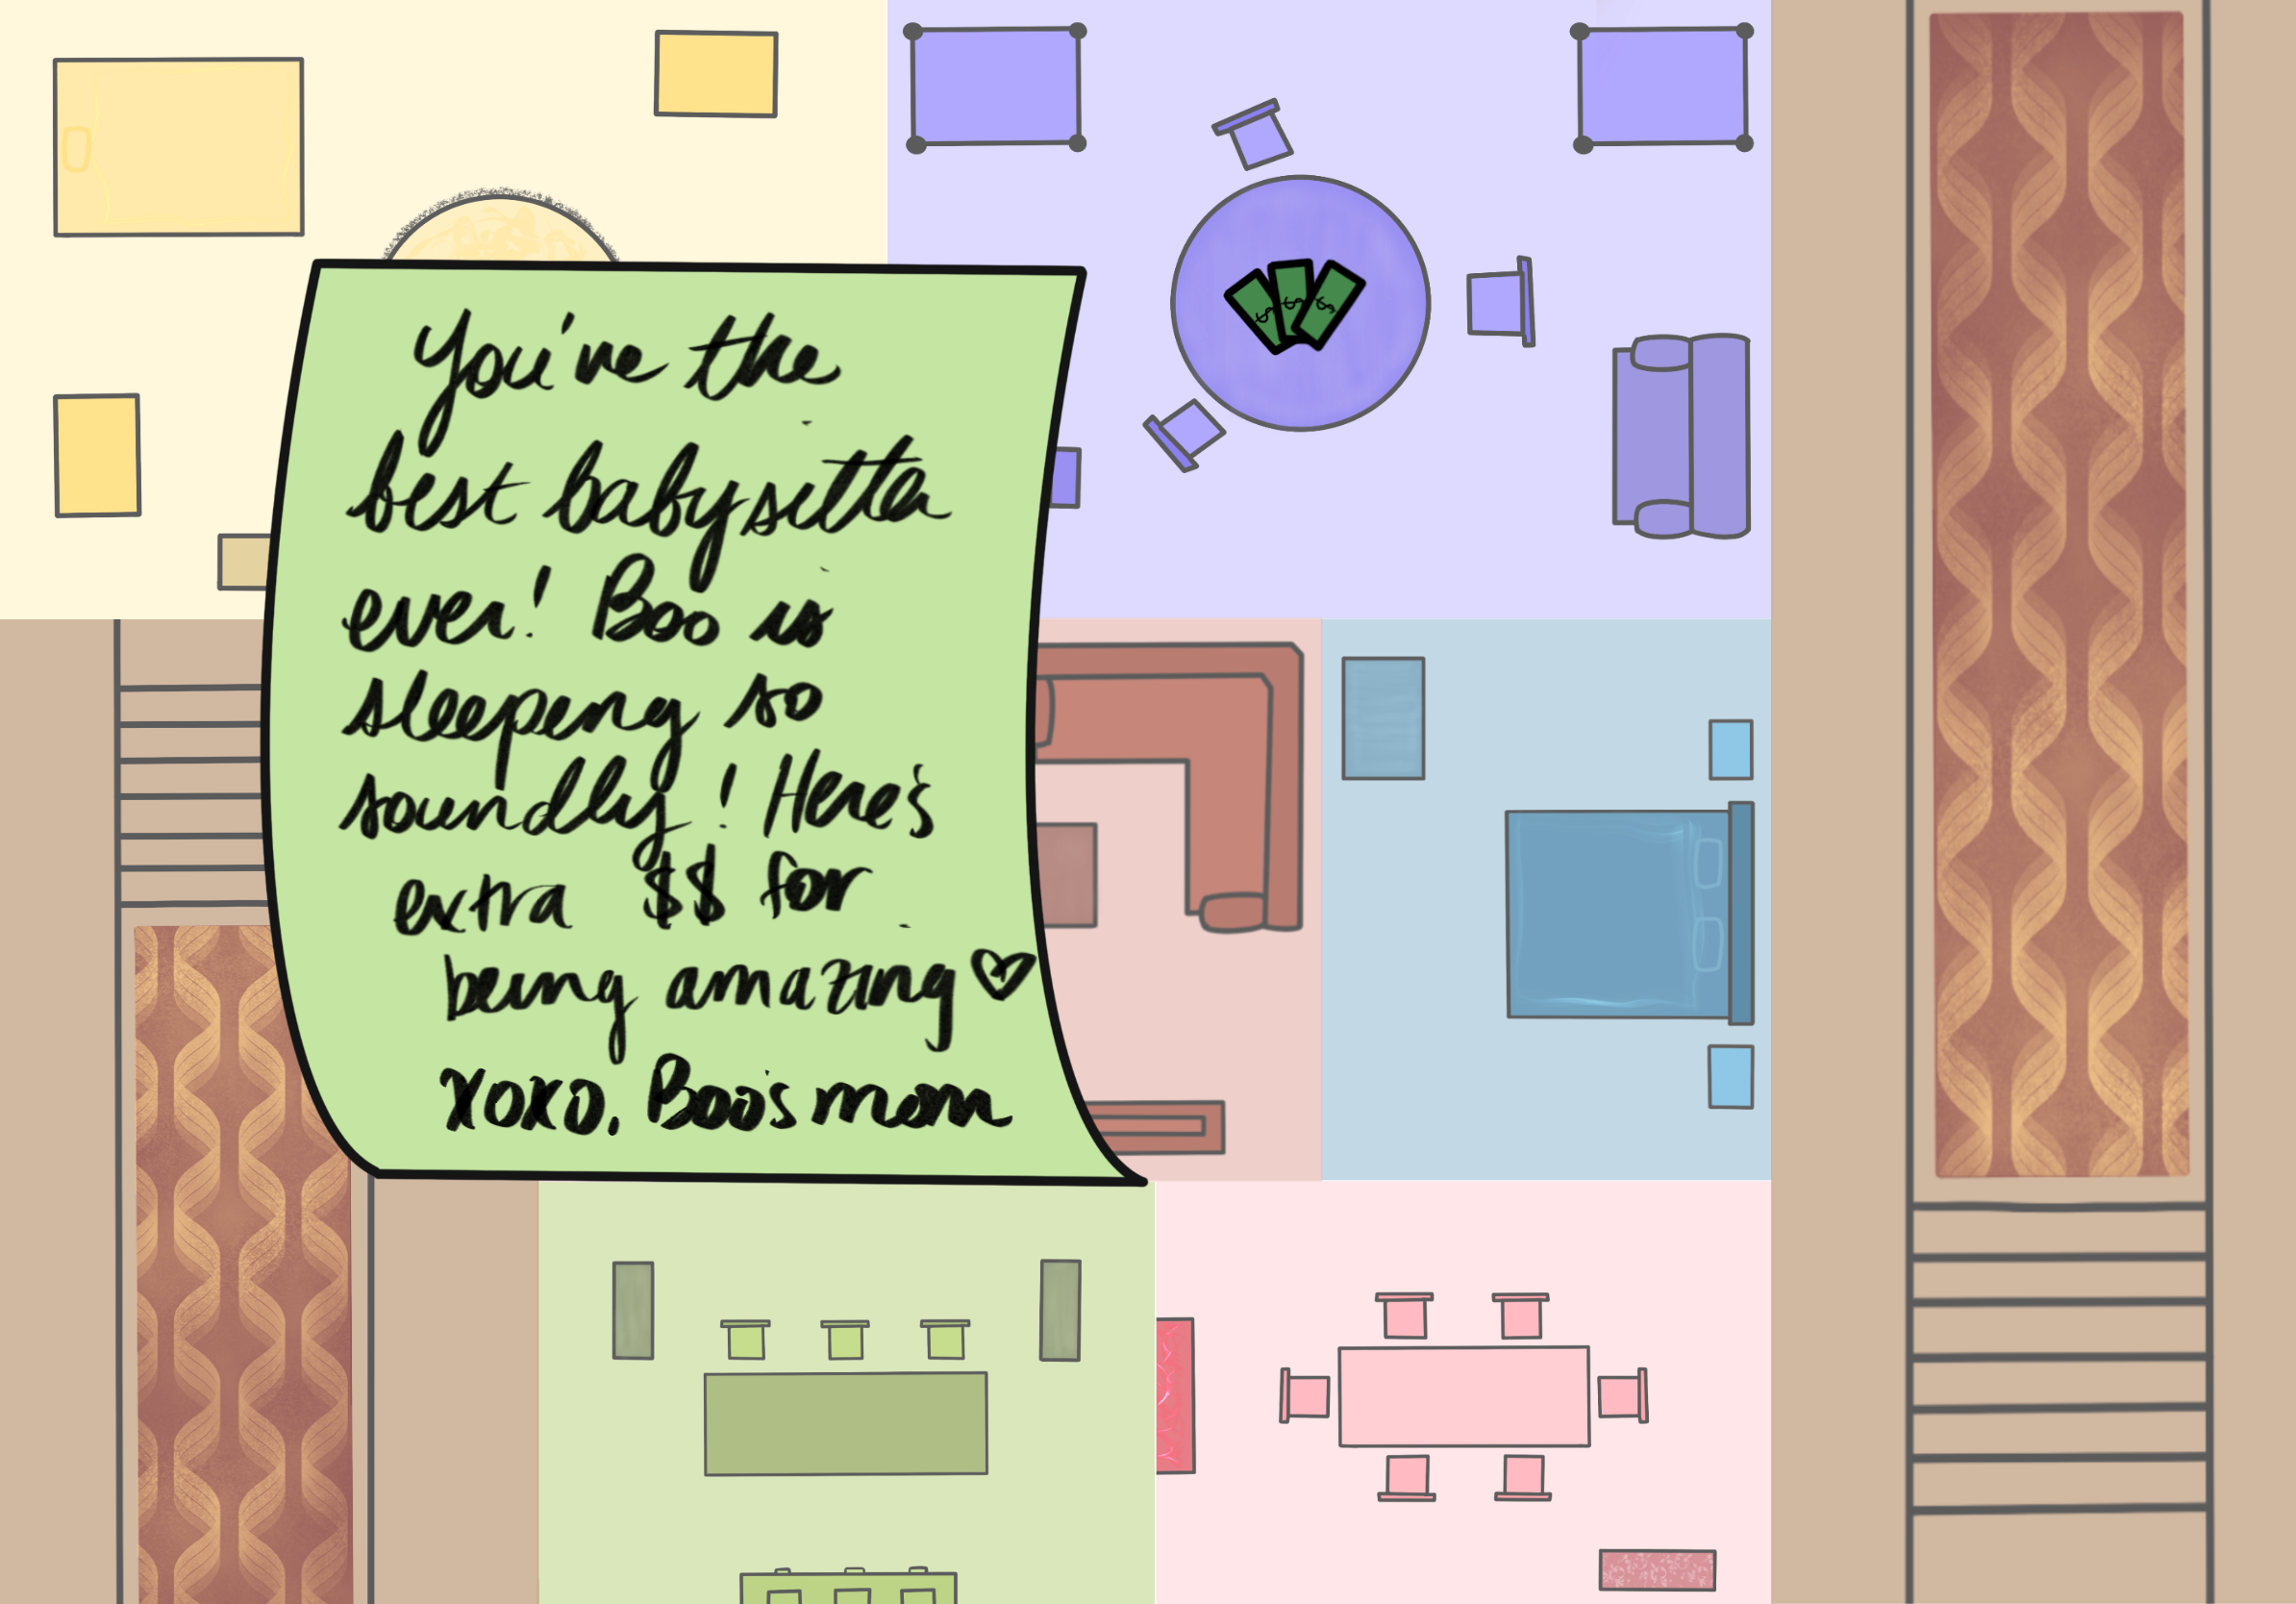 You've the
best babysitter
ever! Boo is
sleeping so
soundly! Here's
extra $$ for
being amazing ♡
XOXO, Boo's mom
$ $ $